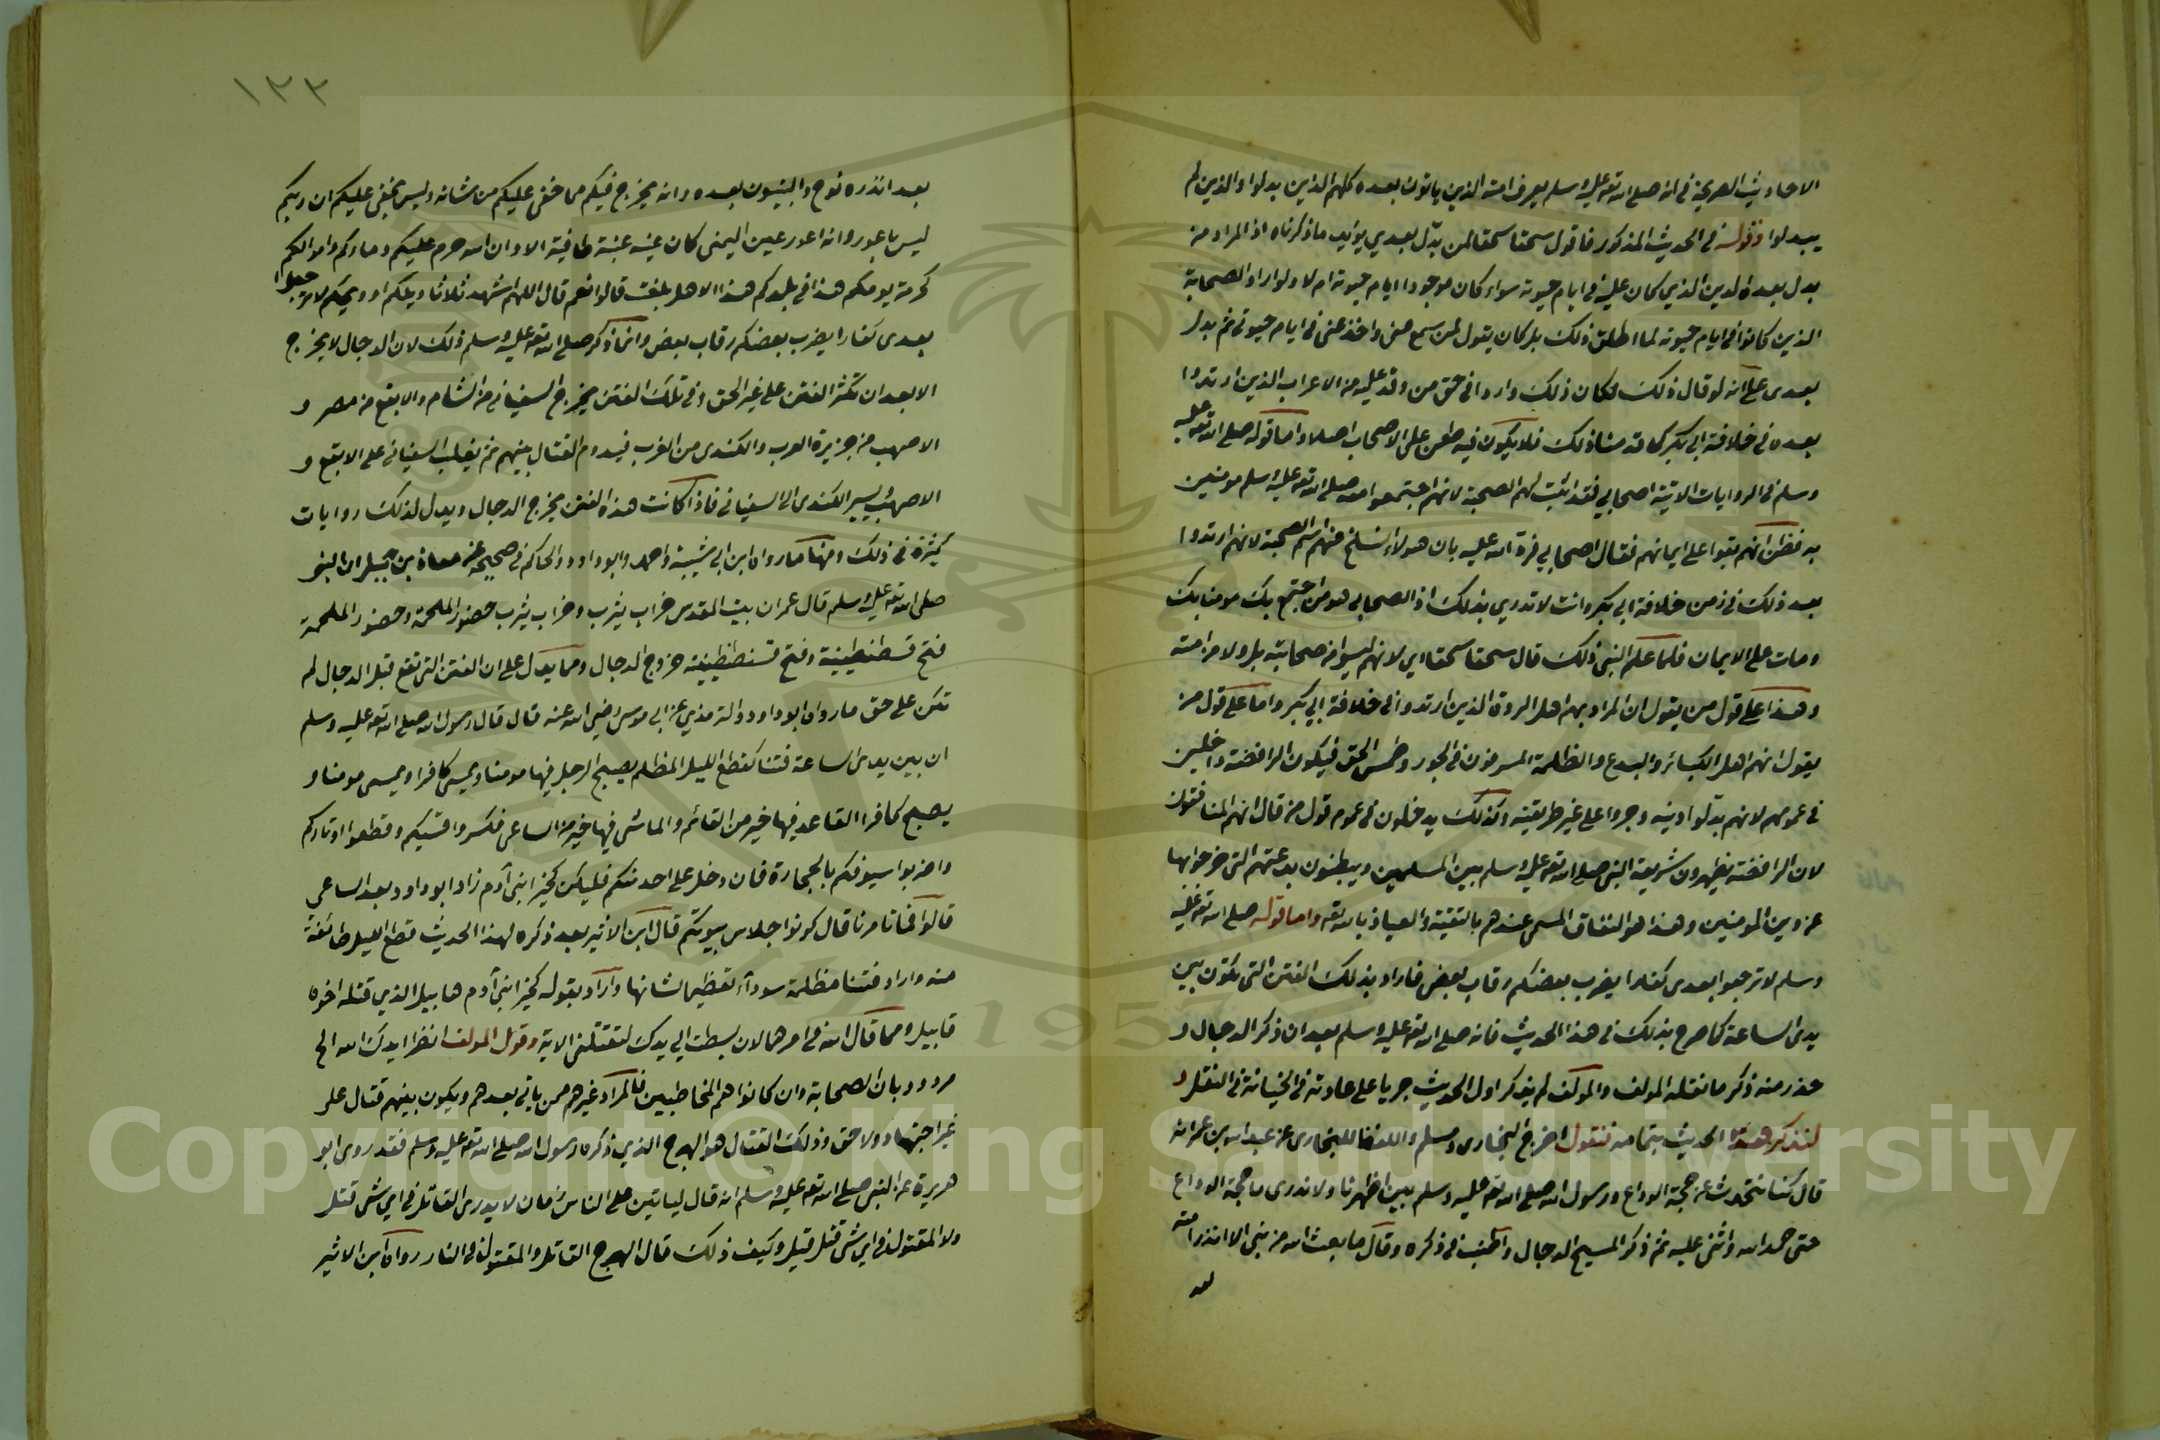 الاحاديث الصريحة في انه صلى الله تعه عليه وسلم يعرف امته الذين ياتون بعده كلهم الذين بدلوا والذين لم
يبدلوا وقوله في الحديث المذكور فاقول سحقا سحقا لمن بدل بعدي يؤيد ما ذكرناه اذ المراد من
بدل بعده الدين الذي كان عليه في ايام حيوته سواء كان موجودا ايام حيوته ام لا ولو اراد الصحابة
الذين كانوا في ايام حيوته لما اطلق ذلك بل كان يقول لمن سمع مني واخذ عني في ايام حيوتي ثم بدل
بعدي على انه لو قال ذلك لكان ذلك واردا في حق من وفد عليه من الاعراب الذين ارتدوا
بعده في خلافة ابي بكر كما قدمنا ذلك فلا يكون فيه طعن على الاصحاب اصلا واما قوله صلى الله تعه عليه
وسلم في الروايات الاتية اصحابي فقد اثبت لهم الصحبة لانهم اجتمعوا معه صلى الله تعه عليه وسلم مومنين
به فظن انهم بقوا على ايمانهم فقال اصحابي فرد الله عليه بان هولاء انسلخ عنهم اسم الصحبة لانهم ارتدوا
بعد ذلك في زمن خلافة ابي بكر وانت لا تدري بذلك اذ الصحابي هو من اجتمع بك مومنا بك
ومات على الايمان فلما علم النبي ذلك قال سحقا سحقا اي لانهم ليسوا من صحابته بل ولا من امته
وهذا على قول من يقول ان المراد بهم اهل الردة الذين ارتدوا في خلافة ابي بكر واما على قول من
يقول انهم اهل الكبائر والبدع والظلمة المسرفون في الجور وطمس الحق فيكون الرافضة داخلين
في عمومهم لانهم بدلوا دينه وجروا على غير طريقته وكذلك يدخلون في عموم قول من قال انهم المنافقون
لان الرافضة يظهرون شريعة النبي صلى الله تعه عليه وسلم بين المسلمين ويبطنون بدعتهم التي خرجوا بها
عن دين المومنين وهذا هو النفاق المسمى عندهم بالتقية والعياذ بالله تعه واما قوله صلى الله تعه عليه
وسلم لا ترجعوا بعدي كفارا يضرب بعضكم رقاب بعض فاراد بذلك الفتن التي تكون بين
يدي الساعة كما صرح بذلك في هذا الحديث فانه صلى الله تعه عليه وسلم بعد ان ذكر الدجال و
حذر منه ذكر ما نقله المولف والمولف لم يذكر اول الحديث جريا على عادته في الخيانة في النقل و
لنذكر هذا الحديث بتمامه فنقول اخرج البخاري ومسلم واللفظ للبخاري عن عبد الله بن عمر انه
قال كنا نتحدث عن حجة الوداع ورسول الله صلى الله تعه عليه وسلم بين اظهرنا ولا ندري ما حجة الوداع
حتى حمد الله واثنى عليه ثم ذكر المسيح الدجال واطنب في ذكره وقال ما بعث الله من نبي الا انذر امته
بعد
١٣٣
بعد انذره نوح والنبيون بعده وانه يخرج فيكم فما خفي عليكم من شانه وليس يخفى عليكم ان ربكم
ليس باعور وانه اعور عين اليمنى كان عينه عنبة طافية الا وان الله حرم عليكم دماءكم واموالكم
كحرمة يومكم هذا في بلدكم هذا الا هل بلغت قالوا نعم قال اللهم اشهد ثلاثا ويلكم او ويحكم لا ترجعوا
بعدي كفارا يضرب بعضكم رقاب بعض وانما ذكر صلى الله تعه عليه وسلم ذلك لان الدجال لا يخرج
الا بعد ان تكثر الفتن على غير الحق وفي تلك الفتن يخرج السفياني من الشام والابقع من مصر و
الاصهب من جزيرة العرب والكندي من الغرب فيدوم القتال بينهم ثم يغلب السفياني على الابقع و
الاصهب يسير الكندي الى السفياني فاذا كانت هذه الفتن يخرج الدجال ويدل لذلك روايات
كثيرة في ذلك ومنها ما رواه ابن ابي شيبة واحمد وابو داود والحاكم في صحيحه عن معاذ بن جبل ان النبي
صلى الله تعه عليه وسلم قال عمران بيت المقدس خراب يثرب وخراب يثرب حضور الملحمة وحضور الملحمة
فتح قسطنطينية وفتح قسنطنطينية خروج الدجال ومما يدل على ان الفتن التي تقع قبل الدجال لم
تكن على حق ما رواه ابو داود والترمذي عن ابي موسى رضي الله عنه قال قال رسول الله صلى الله تعه عليه وسلم
ان بين يدي الساعة فتنا كقطع الليل المظلم يصبح الرجل فيها مومنا ويمسي كافرا ويمسي مومنا و
يصبح كافرا القاعد فيها خير من القائم والماشي فيها خير من الساعي فكسروا قسيكم وقطعوا اوتاركم
واضربوا سيوفكم بالحجارة فان دخل على احد منكم فليكن كخير ابني آدم زاد ابو داود بعد الساعي
قالوا فما تامرنا قال كونوا احلاس بيوتكم قال ابن الاثير بعد ذكره لهذا الحديث قطع الليل طائفة
منه واراد فتنا مظلمة سوداء تعظيما لشانها واراد بقوله كخير ابني آدم هابيل الذي قتله اخوه
قابيل ومما قال الله في امرهما لان بسطت الي يدك لتقتلني الاية وقول المولف انظر ايدك الله الخ
مردود بان الصحابة وان كانوا هم المخاطبين فالمراد غيرهم ممن ياتي بعدهم ويكون بينهم قتال على
غير اجتهاد ولا حق وذلك القتال هو الهرج الذي ذكره رسول الله صلى الله تعه عليه وسلم فقد روى ابو
هريرة عن النبي صلى الله تعه عليه وسلم انه قال لياتين على الناس زمان لا يدري القاتل في اي شي قتل
ولا المقتول في اي شي قتل قيل وكيف ذلك قال الهرج القاتل والمقتول في النار رواه ابن الاثير
Copyright © King Saud University
1957